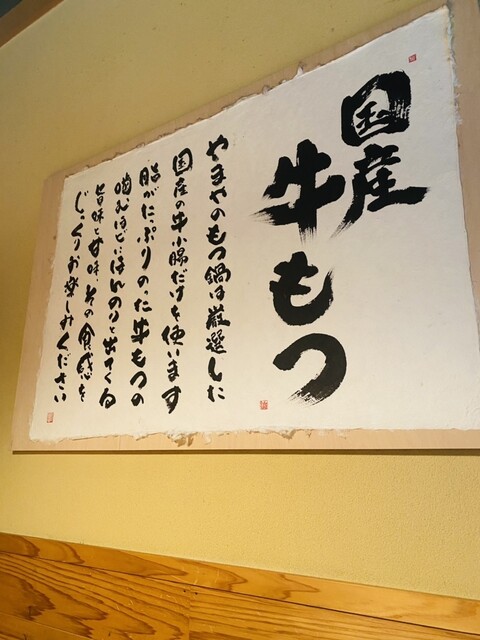 国産
牛もつ
やまやのもつ鍋は厳選した
国産の牛小腸だけを使います
脂がたっぷりのった牛もつの
噛むほどにほんのりと出てくる
旨味と甘味、その食感を
じっくりお楽しみください